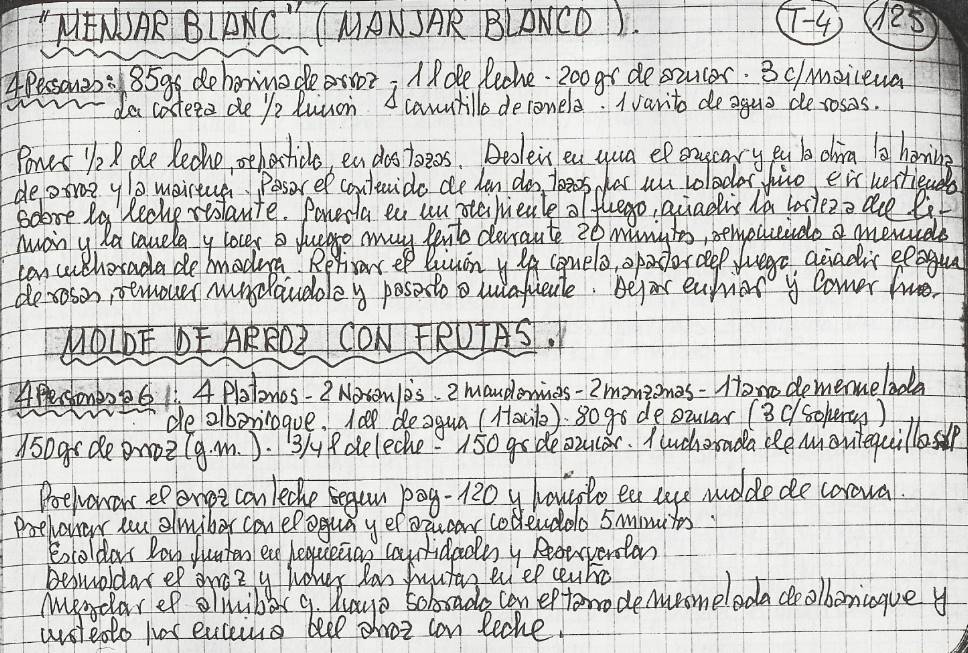 "MENJAR BLANC" (MANJAR BLANCO). T-4 125
4 Personas: 85 grs de harina de arroz - 1 l de leche - 200 grs de azucar - 3 c/ maicena
la corteza de 1/2 limón 1 canutillo de canela. 1 varito de agua de rosas.
Poner 1/2 l de leche, repartido, en dos tazas. Desleir en una el azucar y en la otra la harina
de arroz y la maicena. Pasar el contenido de las dos tazas por un colador fino, e ir vertiendo
sobre la leche restante. Ponerla en un recipiente al fuego, añadir la corteza del li-
món y la canela y cocer a fuego muy lento durante 20 minutos, removiendo a menudo
con cucharada de madera. Retirar el limón y la canela, apartar del fuego añadir el agua
de rosas, remover mezclándola y pasarlo a una fuente. Dejar enfriar y comer frio.
MOLDE DE ARROZ CON FRUTAS.
4 Personas a 6: 4 Platanos - 2 Naranjas - 2 mandarinas - 2 manzanas - 1 tarro de mermelada
de albaricoque. 1 dl de agua (1 tacita). 80 grs de azucar (3 c/ soperas)
150 grs de arroz (g.m.). 3/4 l de leche - 150 grs de azucar. 1 cucharada de mantequilla
Preparar el arroz con leche segun pag-120 y ponerlo en un molde de corona.
Preparar un almibar con el agua y el azucar cociendolo 5 minutos.
Escaldar las frutas en pequeñas cantidades y Reservarlas
Desmoldar el arroz y poner las frutas en el centro
Mezclar el almibar q. haya sobrado con el tarro de mermelada de albaricoque y
verterlo por encima del arroz con leche.